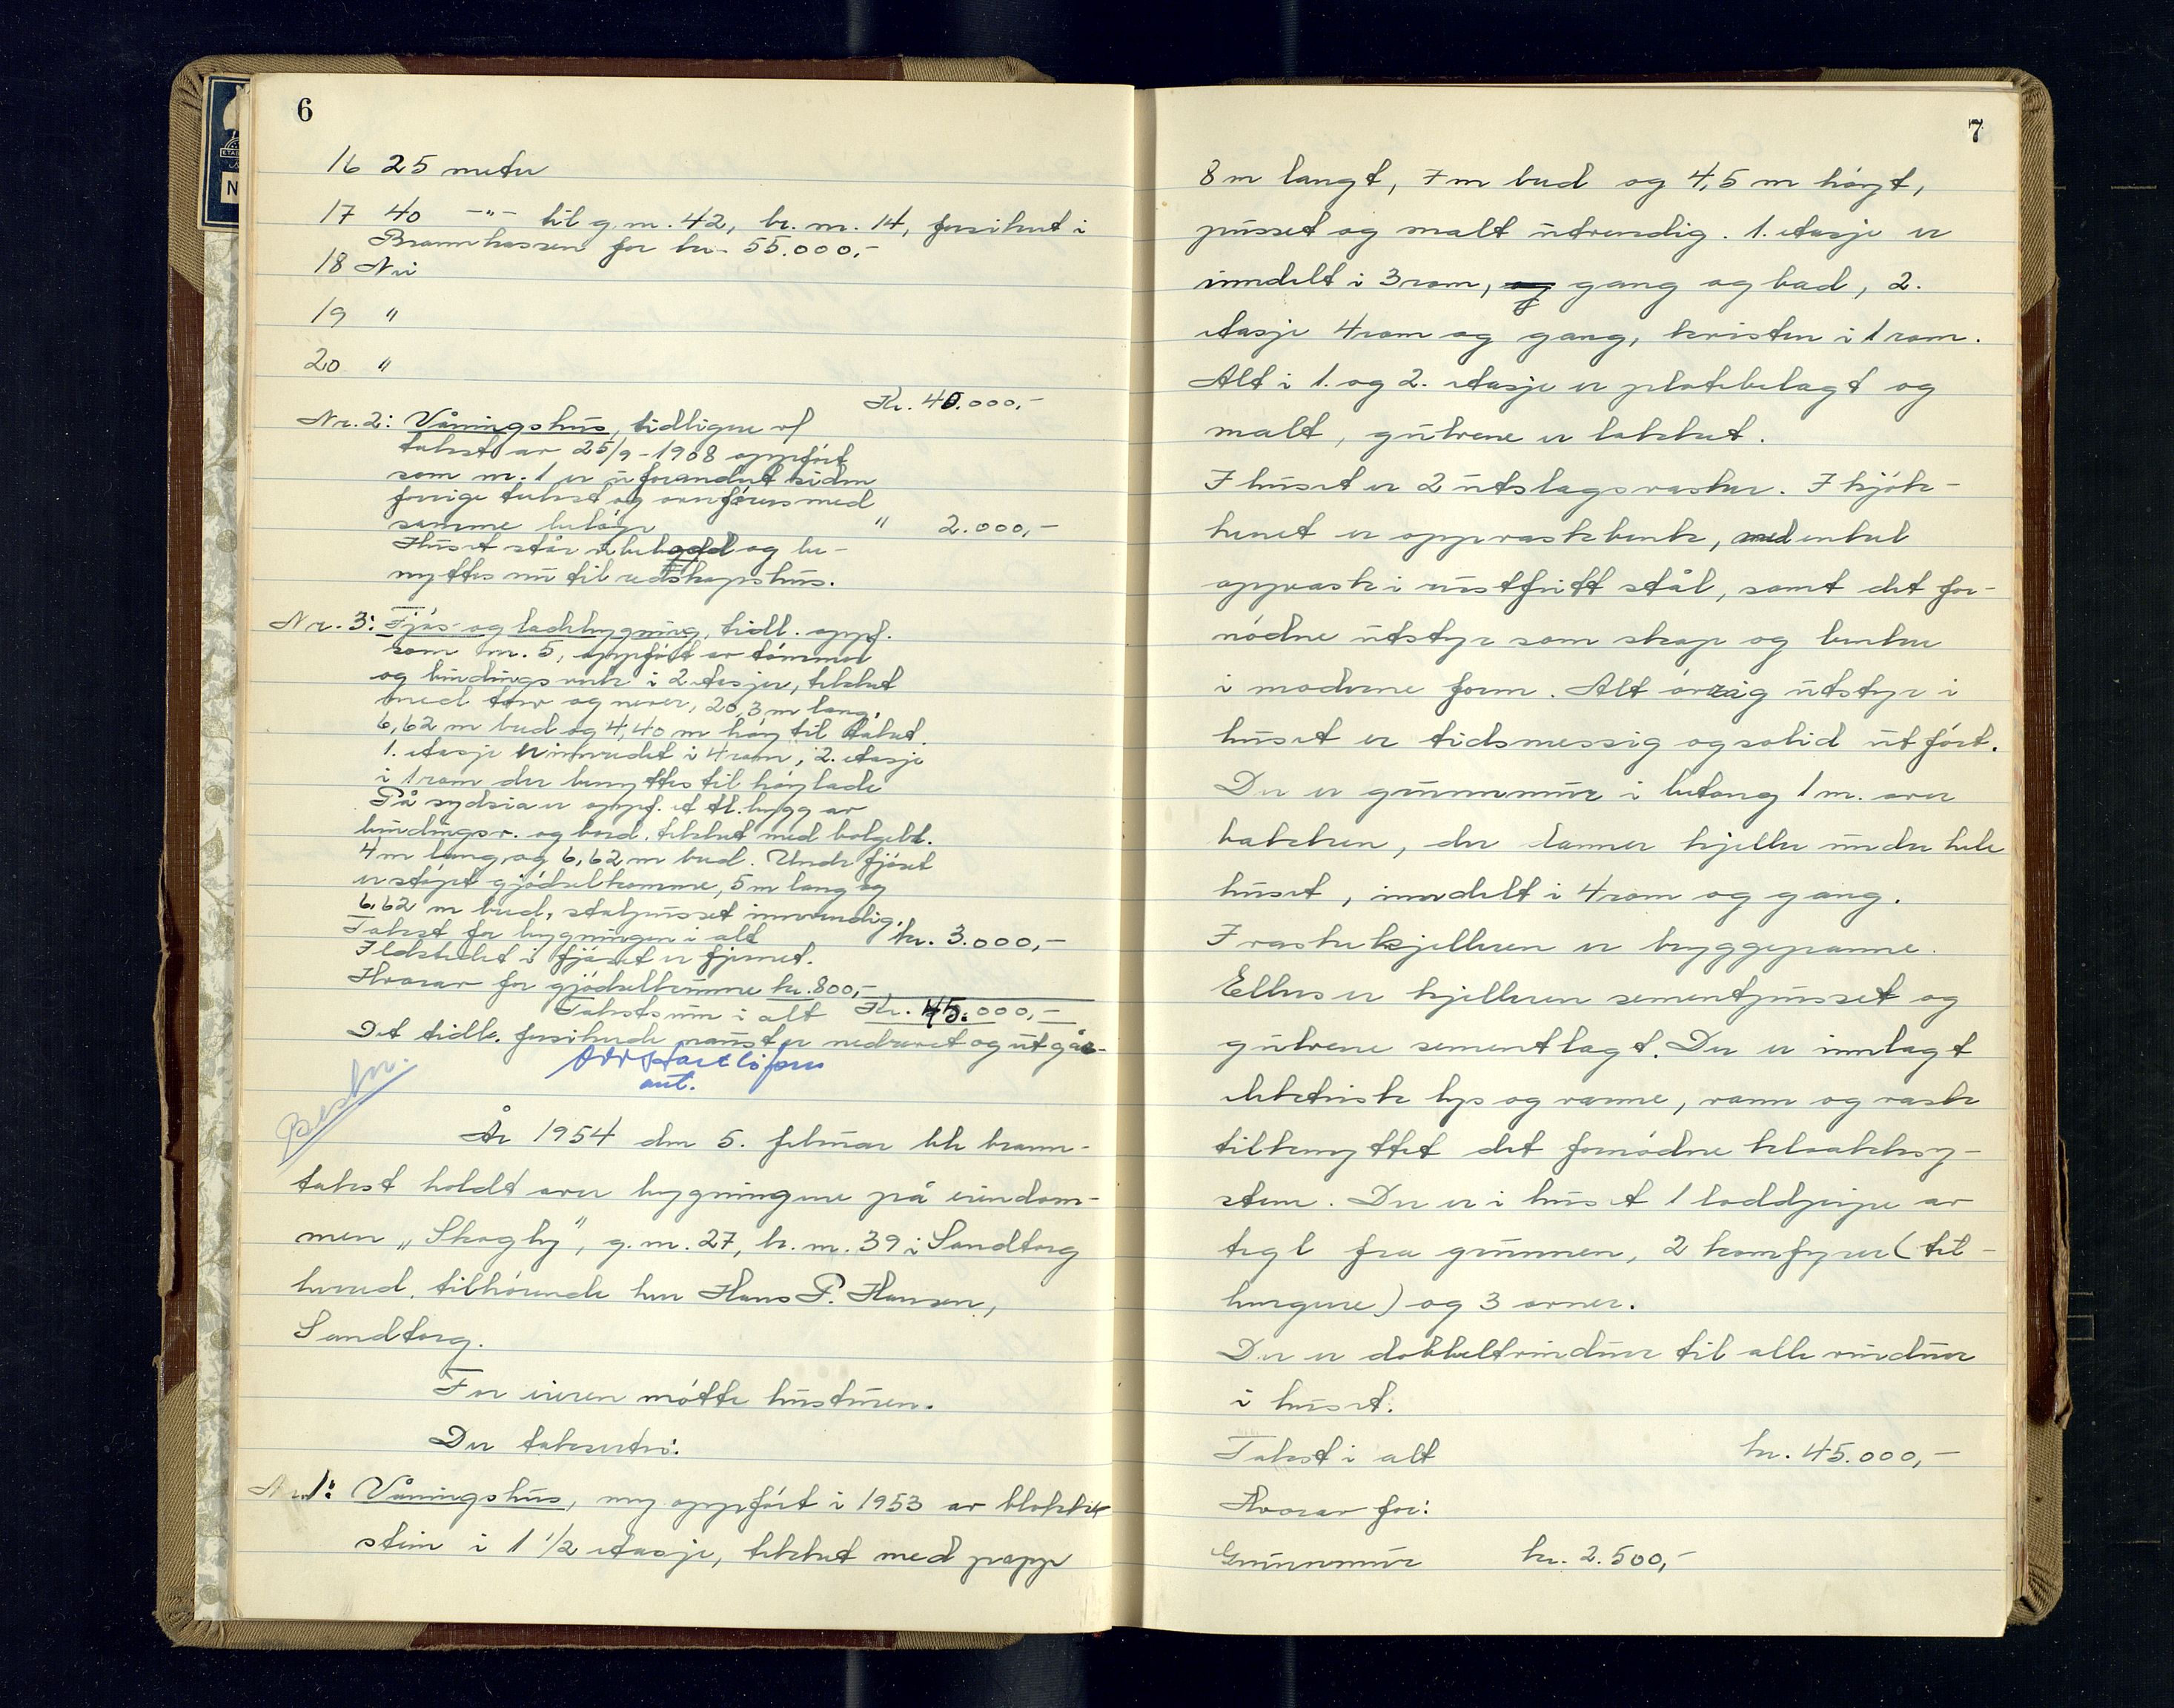 6
16 25 meter
17 40 -"- til g.nr. 42, br.nr. 14, forsikret i
Brannkassen for kr. 55.000,-
18 Nei
19 "
20 "
Kr. 40.000,-
Nr. 2: Våningshus, tidligere ved
takst av 25/9-1908 oppført
som nr. 1 er uforandret siden
forrige takst og overføres med
samme beløp " 2.000,-
Huset står ubebodd og be-
nyttes nu til redskapshus.
Nr. 3: Fjøs- og ladebygning, tidl. oppf.
som nr. 5, oppført av tømmer
og bindingsverk i 2 etasjer, tekket
med torv og never, 20,3 m lang,
6,62 m bred og 4,40 m høy til taket.
1. etasje er innredet i 4 rom, 2. etasje
i 1 rom der benyttes til høylade
På sydsia er oppf. et tl.bygg av
bindingsv. og bord, tekket med bølgebl.
4 m lang og 6,62 m bred. Under fjøset
er støpt gjødselkomme, 5 m lang og
6,62 m bred, stålpusset innvendig.
Takst for bygningen i alt kr. 3.000,-
Ildstedet i fjøset er fjernet.
Hvorav for gjødselkumme kr. 800,-
Takstsum i alt Kr. 45.000,-
Det tidl. forsikrede naust er nedrevet og utgår.
Beskr.
År 1954 den 5. februar ble brann-
takst holdt over bygningene på eiendom-
men „Skogly", g.nr. 27, br.nr. 39 i Sandtorg
herred, tilhørende herr Hans P. Hansen,
Sandtorg.
For eieren møtte hustruen.
Der taksertes:
Nr. 1: Våningshus, ny oppført i 1953 av blokk
stein i 1 1/2 etasje, tekket med papp
7
8 m langt, 7 m bred og 4,5 m høyt,
pusset og malt utvendig. 1. etasje er
inndelt i 3 rom, og gang og bad, 2.
etasje 4 rom og gang, kvisten i 1 rom.
Alt i 1. og 2. etasje er platebelagt og
malt, gulvene er lakkert.
I huset er 2 utslagsvasker. I kjøk-
kenet er oppvaskbenk, med enkel
oppvask i rustfritt stål, samt det for-
nødne utstyr som skap og benker
i moderne form. Alt øvrig utstyr i
huset er tidsmessig og solid utført.
Der er grunnmur i betong 1 m. over
bakken, der danner kjeller under hele
huset, inndelt i 4 rom og gang.
I vaskekjelleren er bryggepanne.
Ellers er kjelleren sementpusset og
gulvene sementlagt. Der er innlagt
elektrisk lys og varme, vann og vask
tilknyttet det fornødne kloakksy-
stem. Der er i huset 1 loddpipe av
tegl fra grunnen, 2 komfyrer (tel-
hengere) og 3 ovner.
Der er dobbeltvinduer til alle vinduer
i huset.
Takst i alt kr. 45.000,-
Hvorav for:
Grunnmur kr. 2.500,-